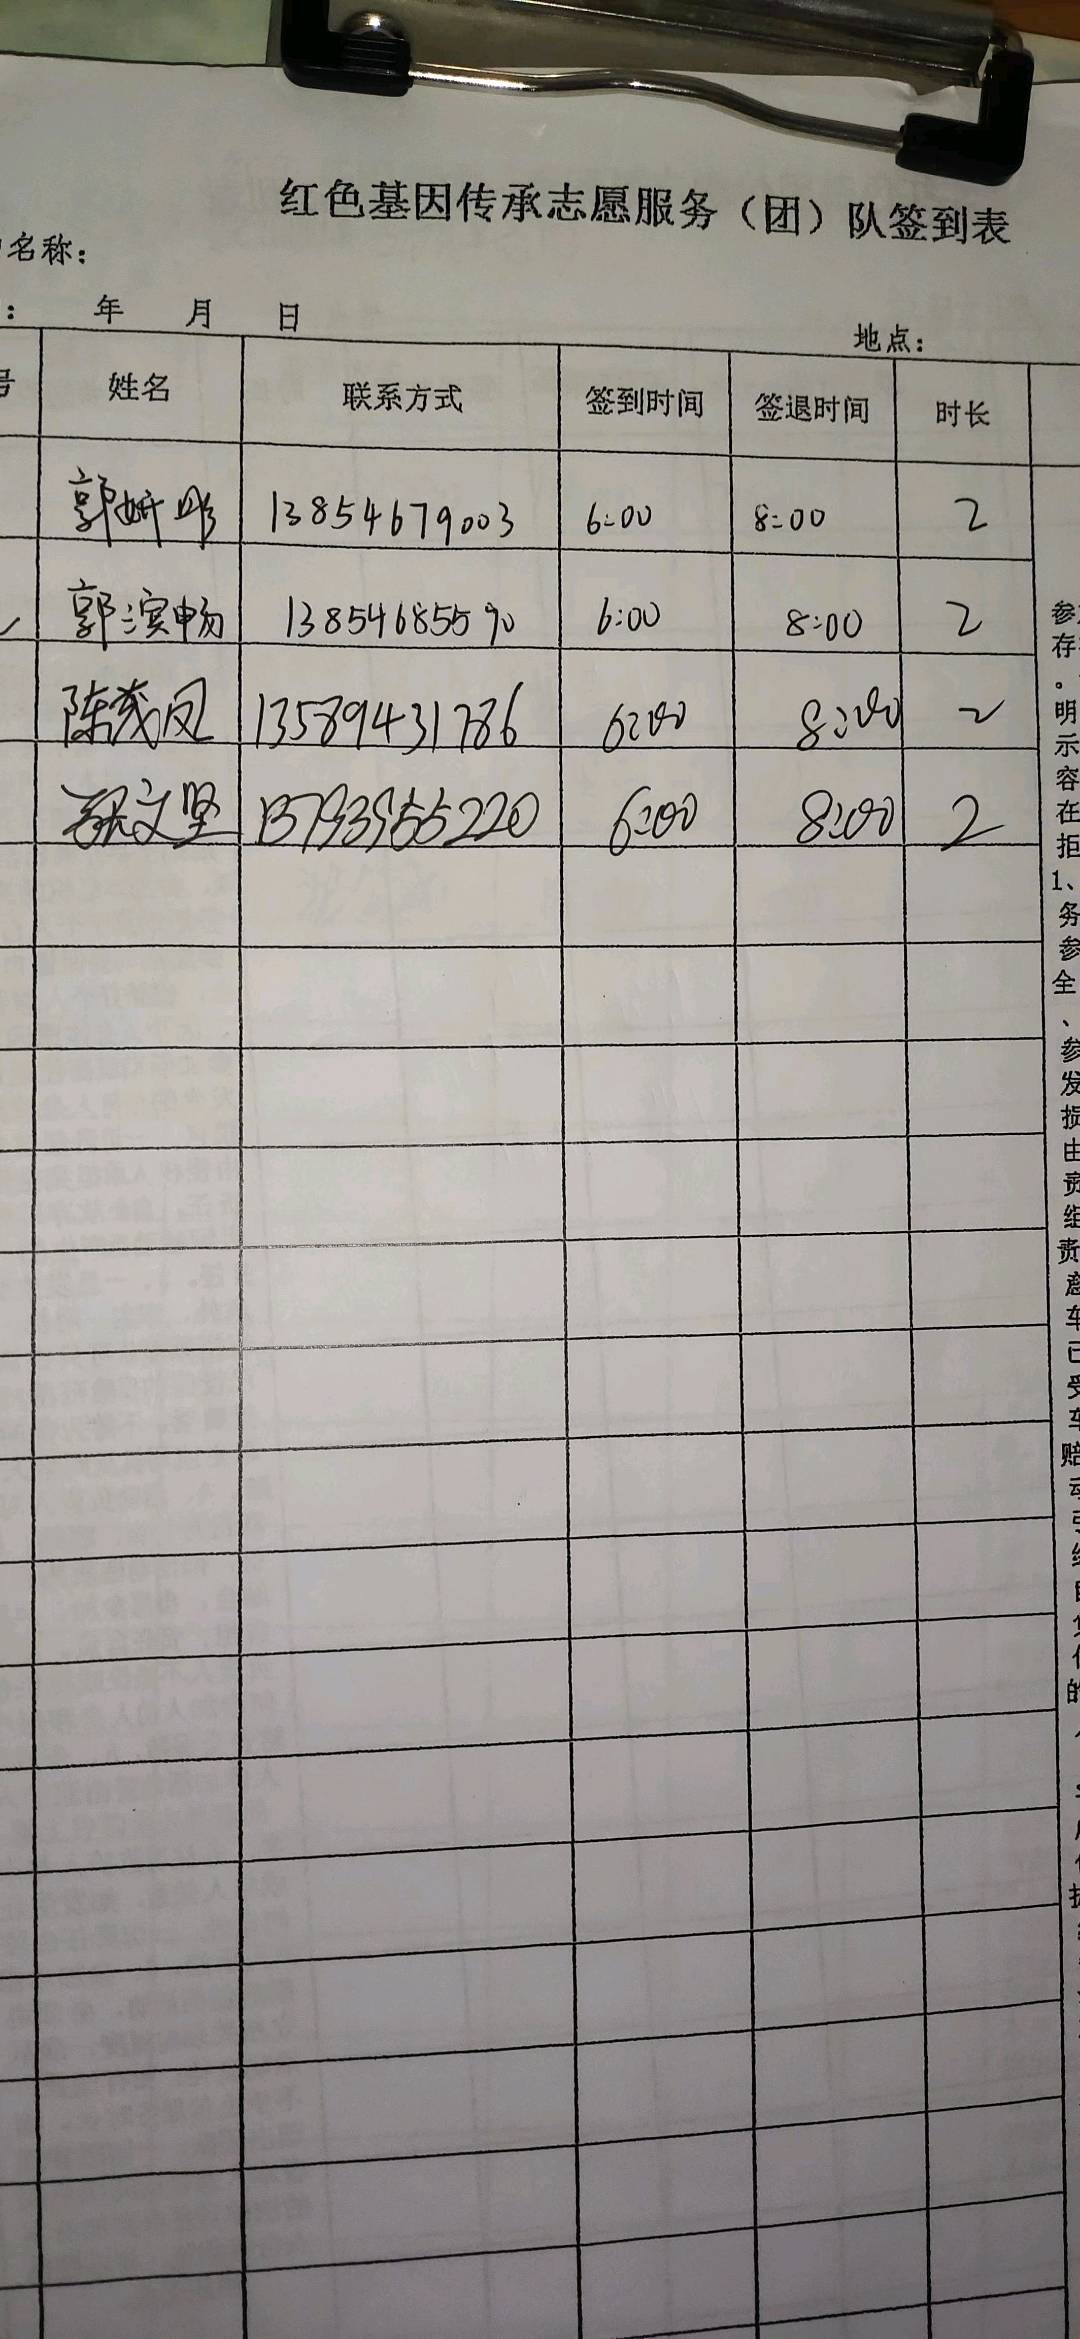 红色基因传承志愿服务（团）队签到表
名称：
： 年 月 日 地点：
号 姓名 联系方式 签到时间 签退时间 时长
郭妍彤 13854679003 6:00 8:00 2
郭滨畅 13854685590 6:00 8:00 2
陈茂凤 13589431786 6:00 8:00 2
文坚 13793955220 6:00 8:00 2
参
存
。
明
示
容
在
拒
1、
务
参
全
、
参
发
损
由
责
组
责
意
车
已
受
车
赔
动
引
组
自
负
的